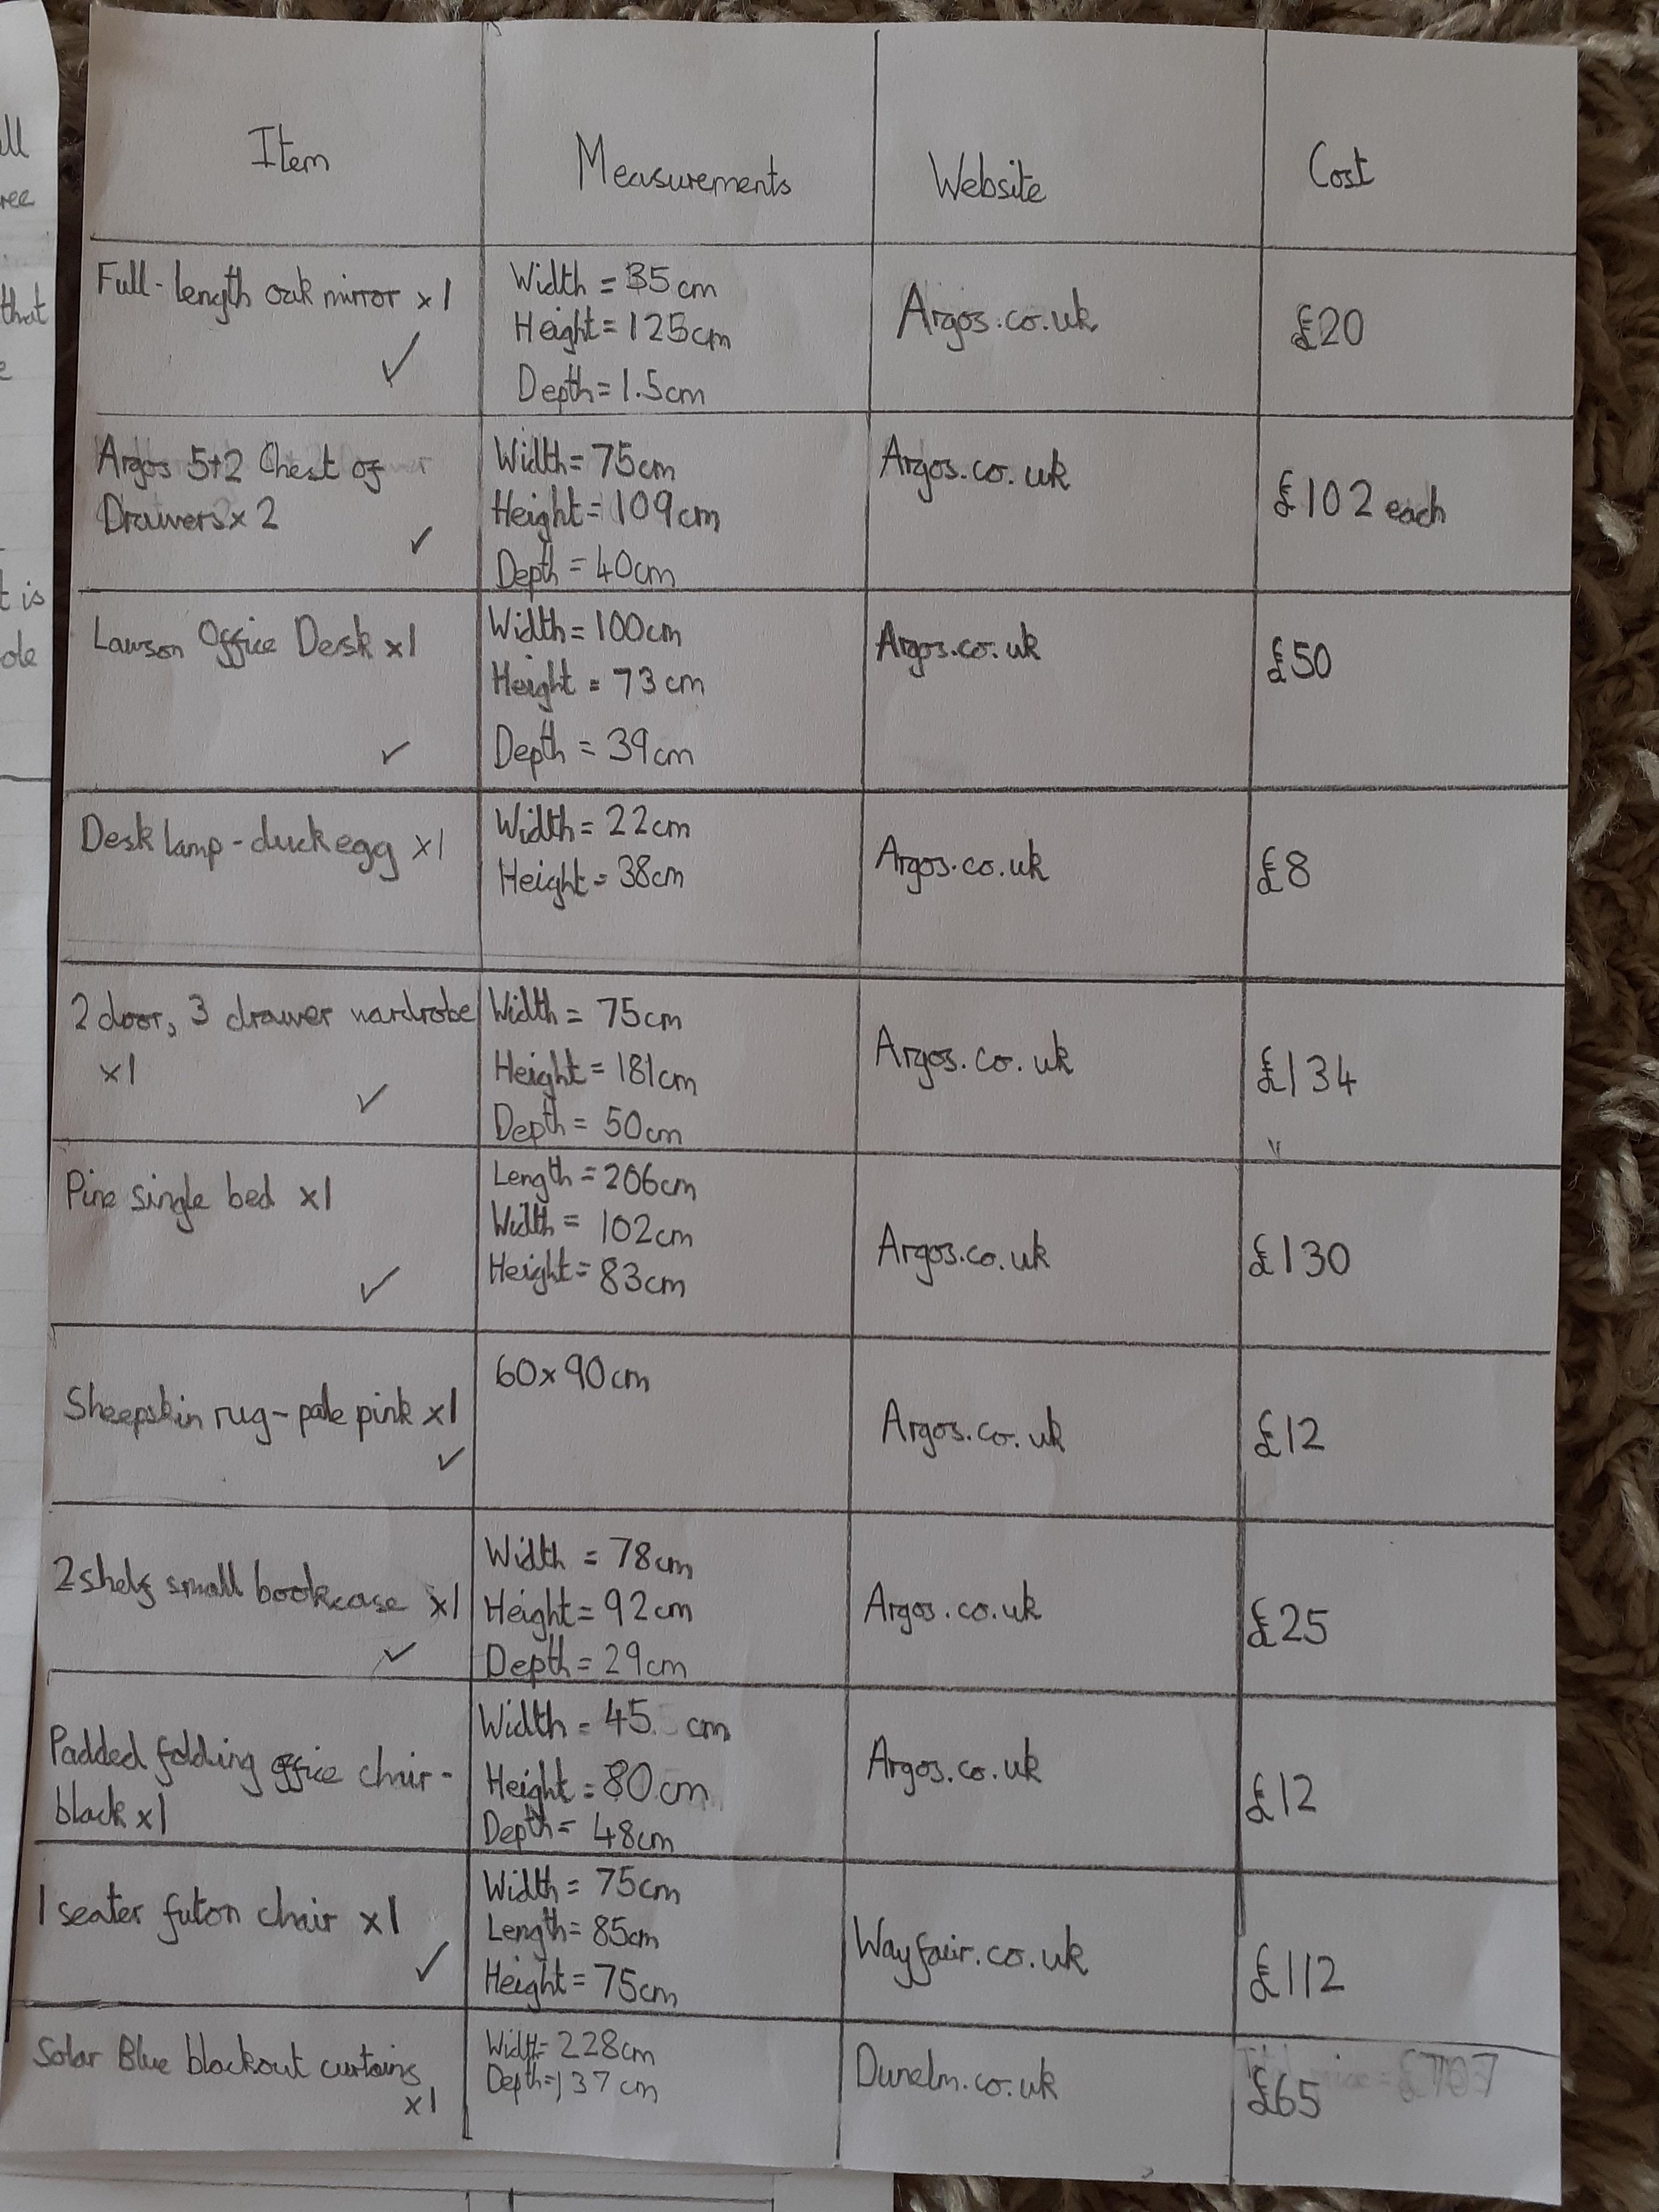 Item Measurements Website Cost
Full-length oak mirror x1
Width = 35cm
Height = 125cm
Depth = 1.5cm
Argos.co.uk
£20
Argos 5+2 Chest of
Drawers x 2
Width = 75cm
Height = 109cm
Depth = 40cm
Argos.co.uk
£102 each
Lawson Office Desk x1
Width = 100cm
Height = 73cm
Depth = 39cm
Argos.co.uk
£50
Desk lamp - duck egg x1
Width = 22cm
Height = 38cm
Argos.co.uk
£8
2 door, 3 drawer wardrobe
x1
Width = 75cm
Height = 181cm
Depth = 50cm
Argos.co.uk
£134
Pine single bed x1
Length = 206cm
Width = 102cm
Height = 83cm
Argos.co.uk
£130
Sheepskin rug - pale pink x1
60x90cm
Argos.co.uk
£12
2 shelf small bookcase x1
Width = 78cm
Height = 92cm
Depth = 29cm
Argos.co.uk
£25
Padded folding office chair -
black x1
Width = 45 cm
Height = 80cm
Depth = 48cm
Argos.co.uk
£12
1 seater futon chair x1
Width = 75cm
Length = 85cm
Height = 75cm
Wayfair.co.uk
£112
Solar Blue blackout curtains
x1
Width = 228cm
Depth = 137cm
Dunelm.co.uk
£65
ll
ree
that
e
t is
ole